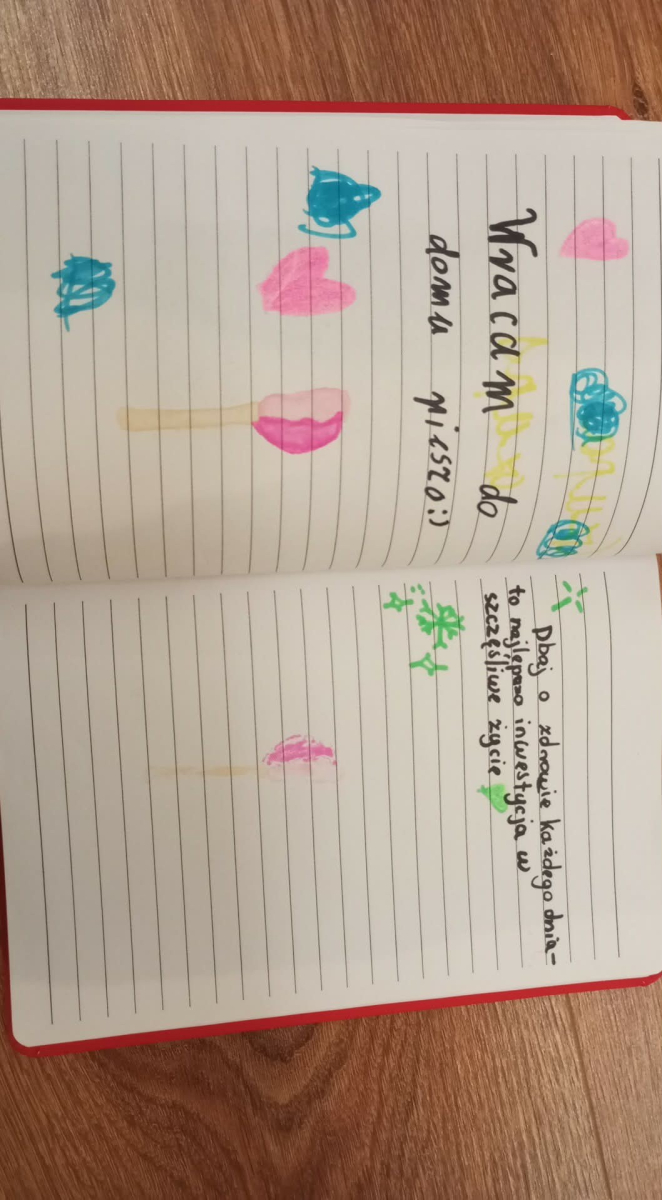 Wracam do
domu pieszo:)
Dbaj o zdrowie każdego dnia-
to najlepsza inwestycja w
szczęśliwe życie